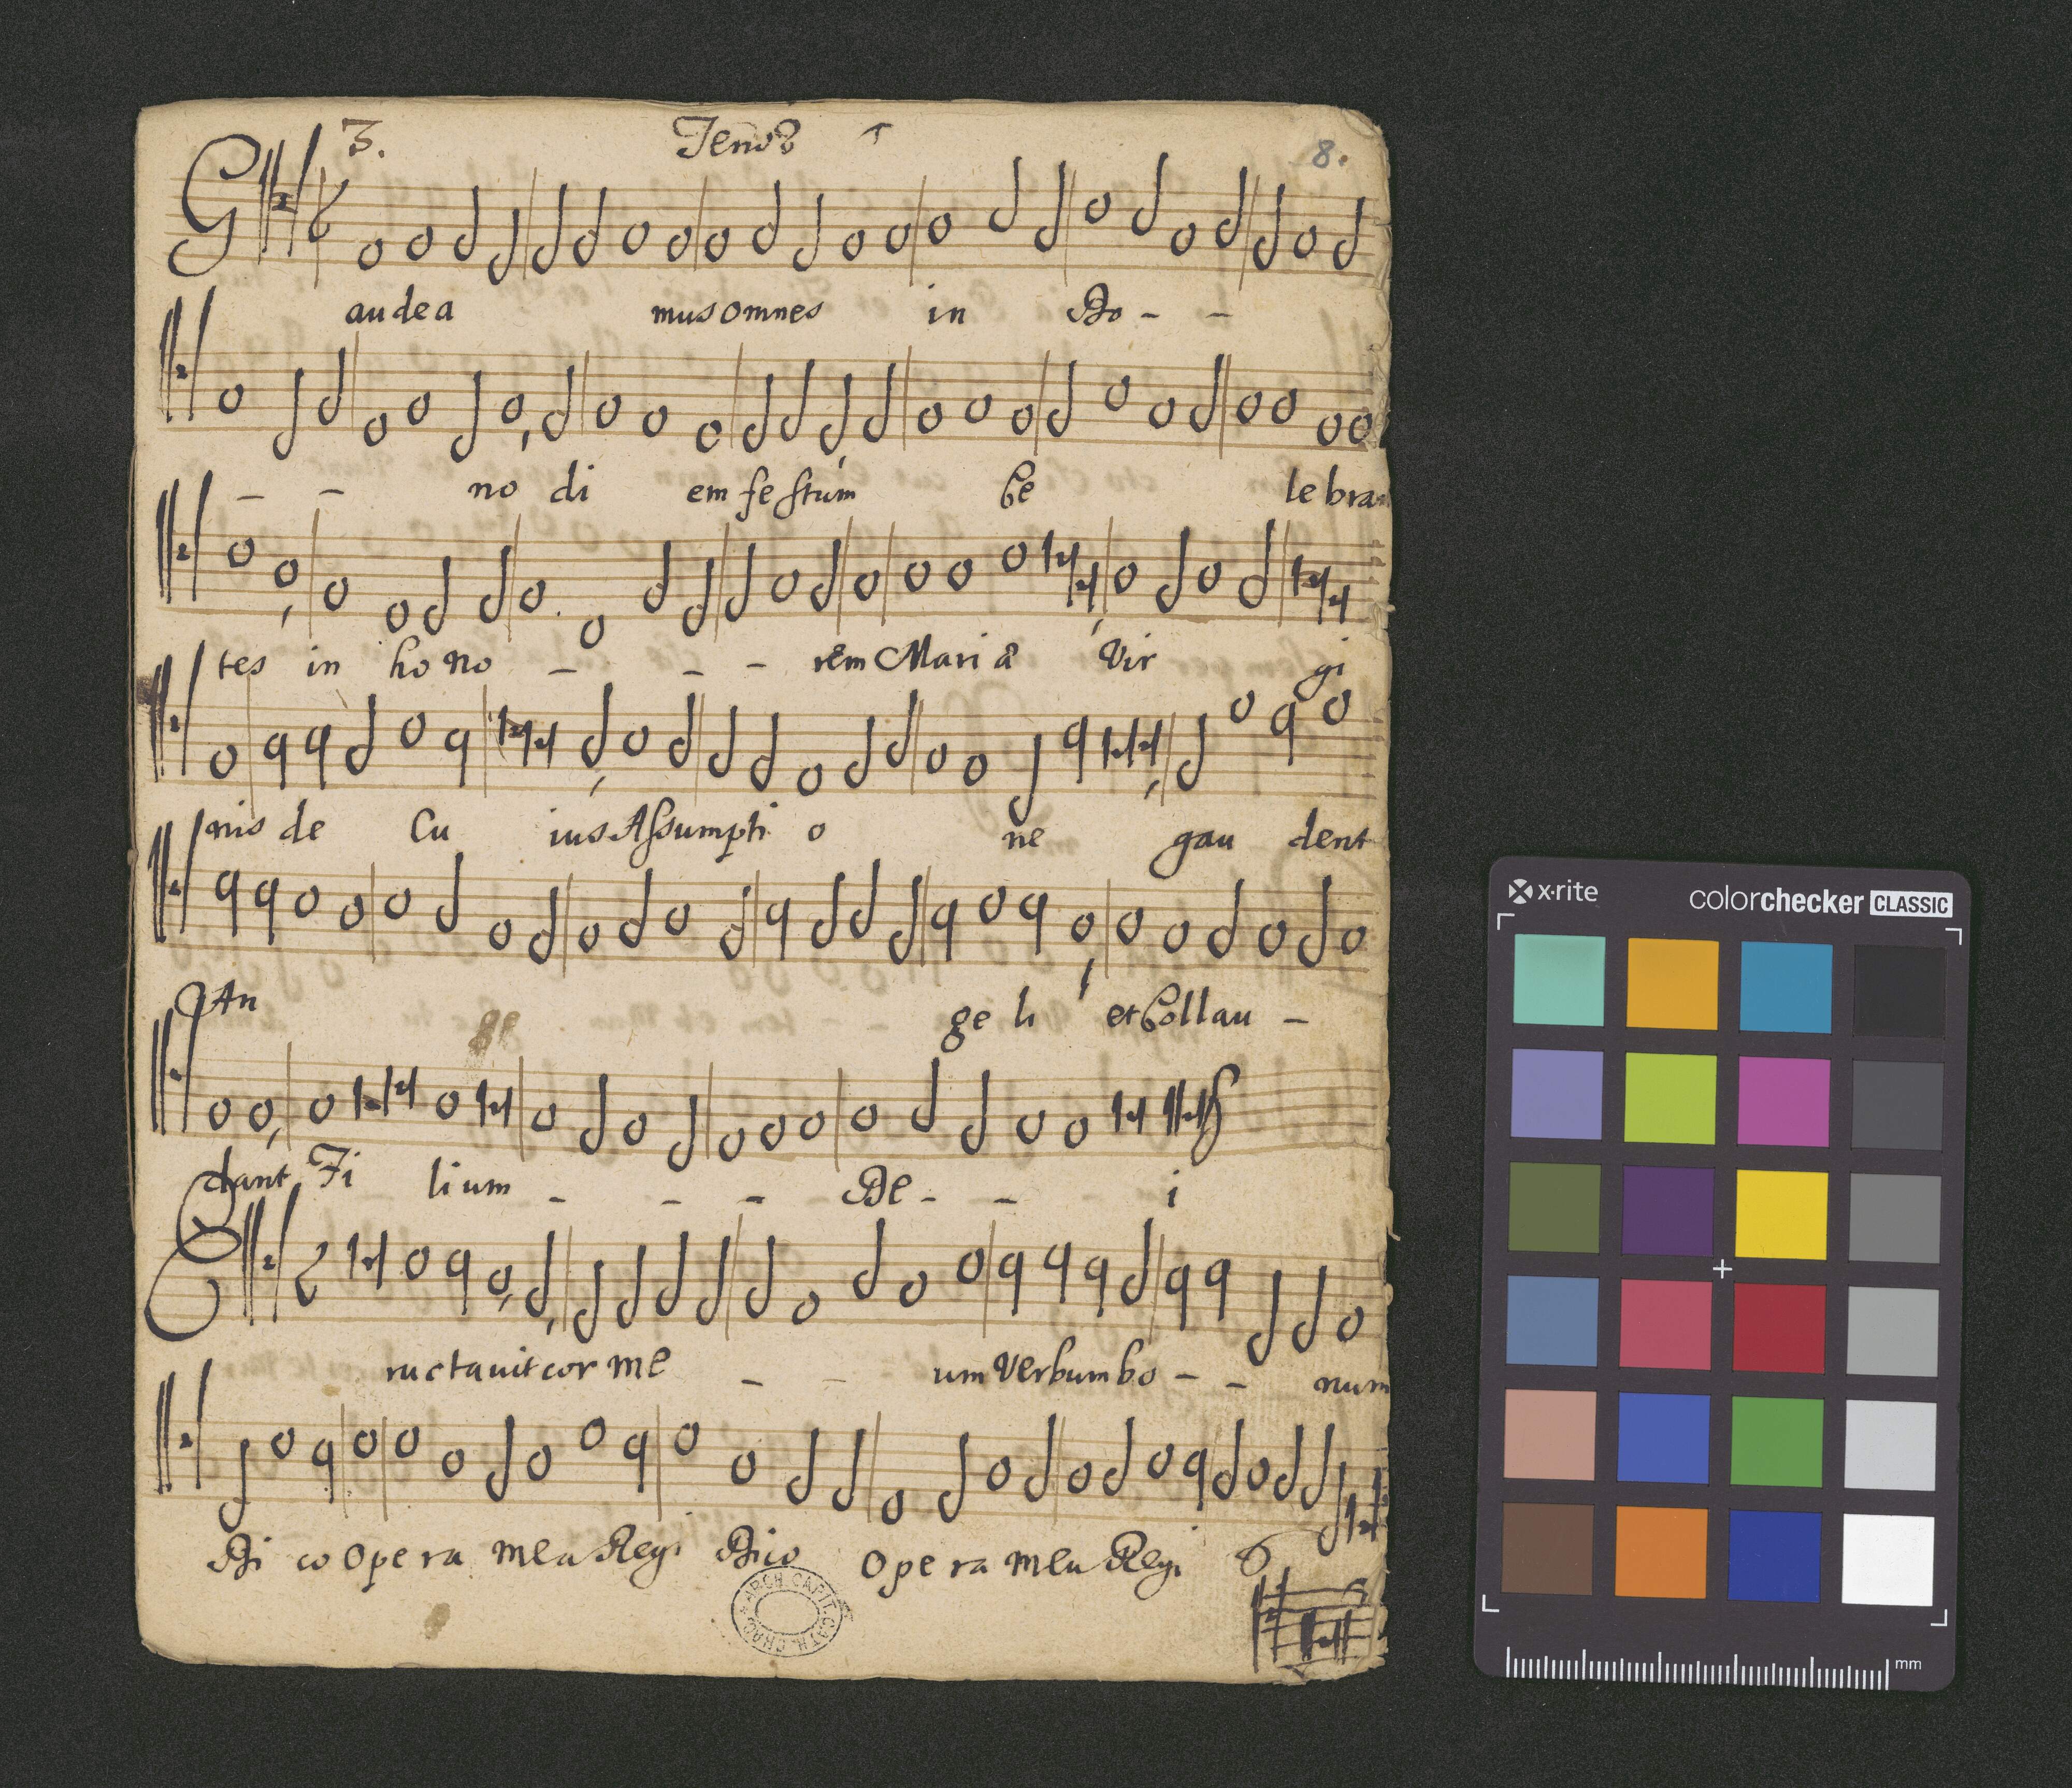 3. Tenor 8.
Gaudea musomnes in Do - -
- - no di em festum Ce lebran
tes in ho no - - - rem Mariæ Vir gi
nis de Cu ius Assumpti o ne gau dent
An ge li et Collau -
dant Fi lium - - - De - - i
Eructauit cor me - - um Verbum bo - - num
Di co opera mea Regi Dico opera mea Regi
ARCH. CAPIT. CATH. CRAC.
x-rite
colorchecker CLASSIC
mm